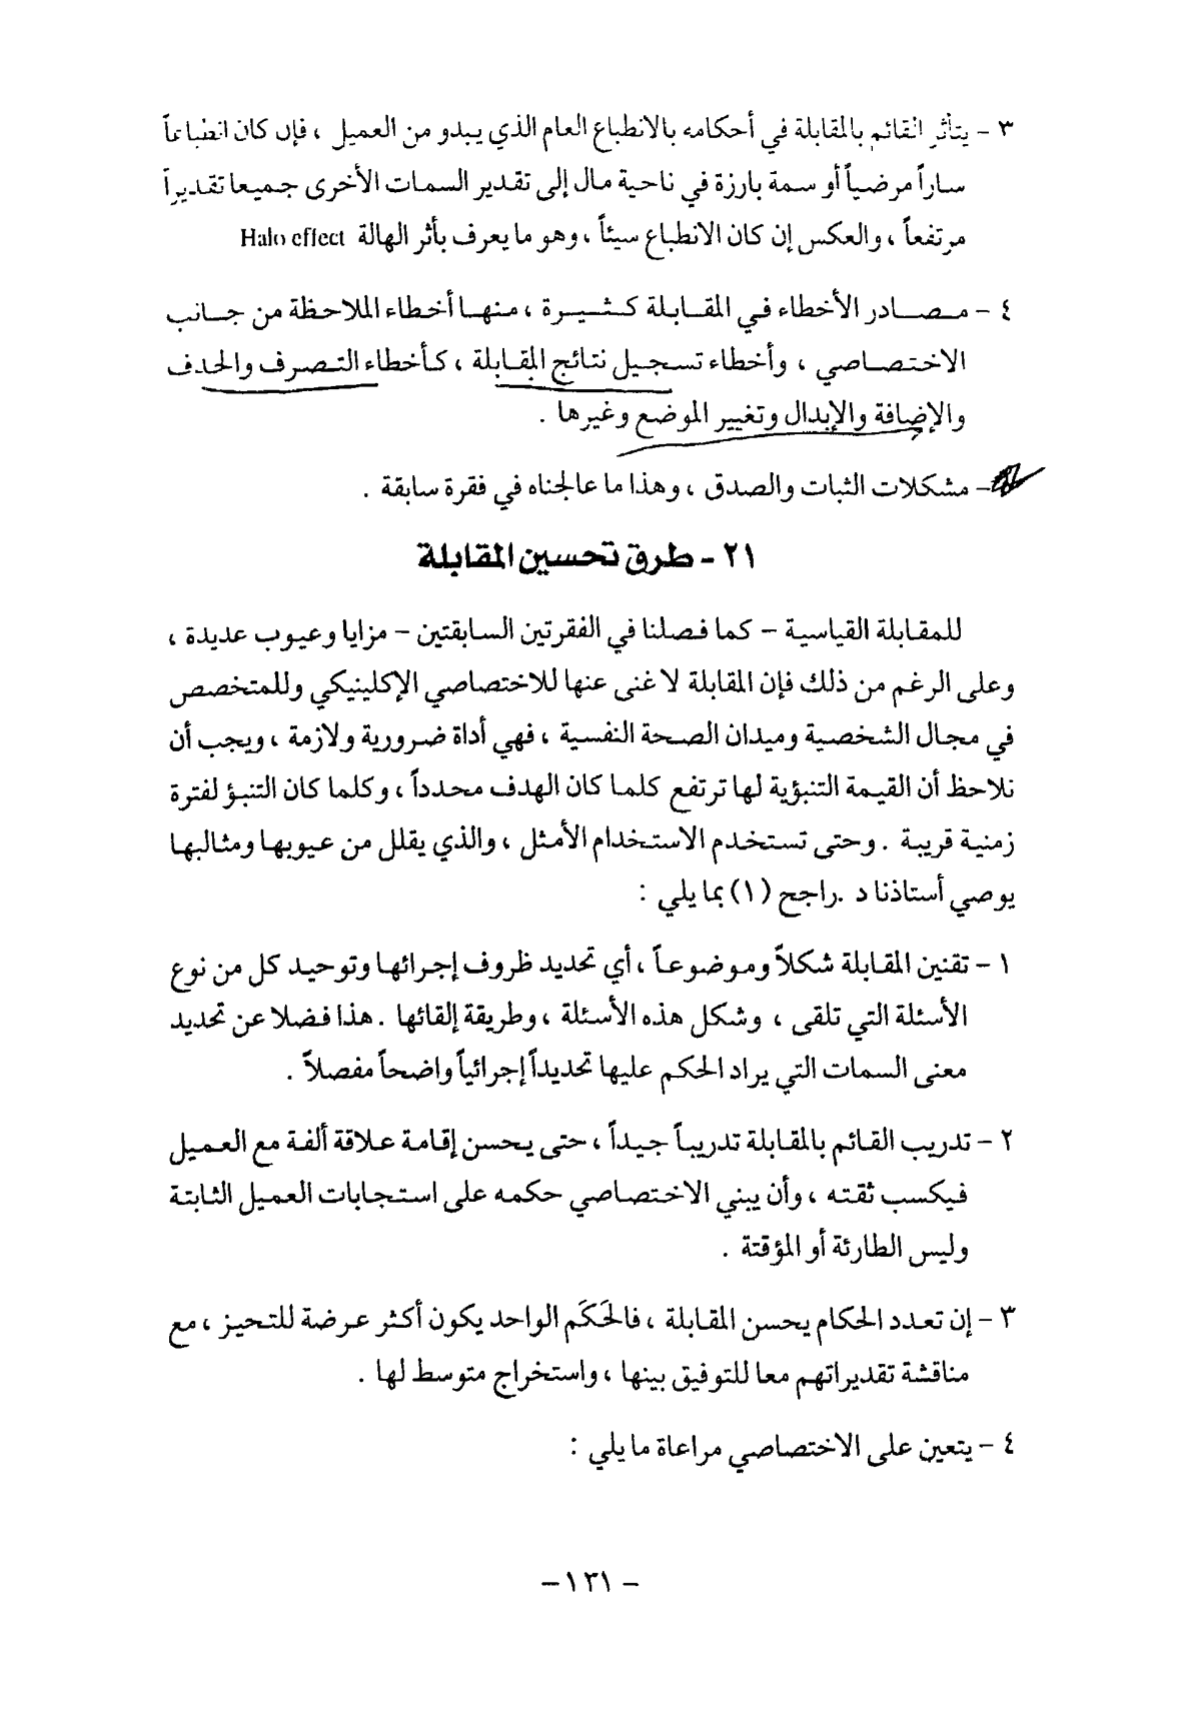 ٣ - يتأثر القائم بالمقابلة في أحكامه بالانطباع العام الذي يبدو من العميل ، فإن كان انطباعاً
ساراً مرضياً أو سمة بارزة في ناحية مال إلى تقدير السمات الأخرى جميعا تقديراً
مرتفعاً ، والعكس إن كان الانطباع سيئاً ، وهو ما يعرف بأثر الهالة Halo effect
٤ - مصادر الأخطاء في المقابلة كثيرة ، منها أخطاء الملاحظة من جانب
الاختصاصي ، وأخطاء تسجيل نتائج المقابلة ، كأخطاء التصرف والحذف
والإضافة والإبدال وتغيير الموضع وغيرها .
- مشكلات الثبات والصدق ، وهذا ما عالجناه في فقرة سابقة .
٢١ - طرق تحسين المقابلة
للمقابلة القياسية - كما فصلنا في الفقرتين السابقتين - مزايا وعيوب عديدة ،
وعلى الرغم من ذلك فإن المقابلة لا غنى عنها للاختصاصي الإكلينيكي وللمتخصص
في مجال الشخصية وميدان الصحة النفسية ، فهي أداة ضرورية ولازمة ، ويجب أن
نلاحظ أن القيمة التنبؤية لها ترتفع كلما كان الهدف محدداً ، وكلما كان التنبؤ لفترة
زمنية قريبة . وحتى تستخدم الاستخدام الأمثل ، والذي يقلل من عيوبها ومثالبها
يوصي أستاذنا د .راجح (١) بما يلي :
١ - تقنين المقابلة شكلاً وموضوعاً ، أي تحديد ظروف إجرائها وتوحيد كل من نوع
الأسئلة التي تلقى ، وشكل هذه الأسئلة ، وطريقة إلقائها . هذا فضلا عن تحديد
معنى السمات التي يراد الحكم عليها تحديداً إجرائياً واضحاً مفصلاً .
٢ - تدريب القائم بالمقابلة تدريباً جيداً ، حتى يحسن إقامة علاقة ألفة مع العميل
فيكسب ثقته ، وأن يبني الاختصاصي حكمه على استجابات العميل الثابتة
وليس الطارئة أو المؤقتة .
٣ - إن تعدد الحكام يحسن المقابلة ، فالحَكَم الواحد يكون أكثر عرضة للتحيز ، مع
مناقشة تقديراتهم معا للتوفيق بينها ، واستخراج متوسط لها .
٤ - يتعين على الاختصاصي مراعاة ما يلي :
- ١٣١ -